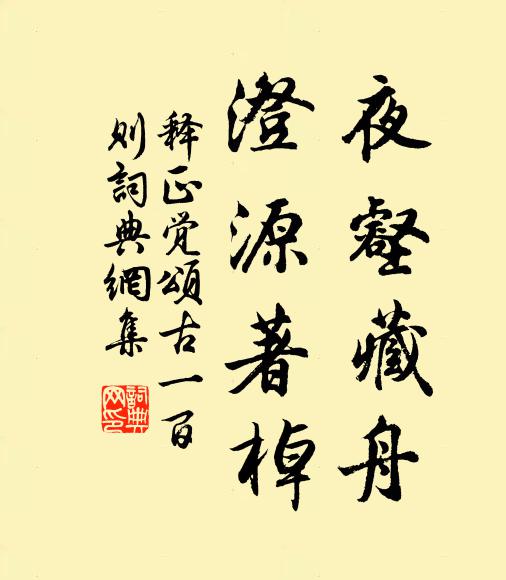 夜壑藏舟
澄源著棹
释正觉颂古一百
则詞典網集
詞典网印